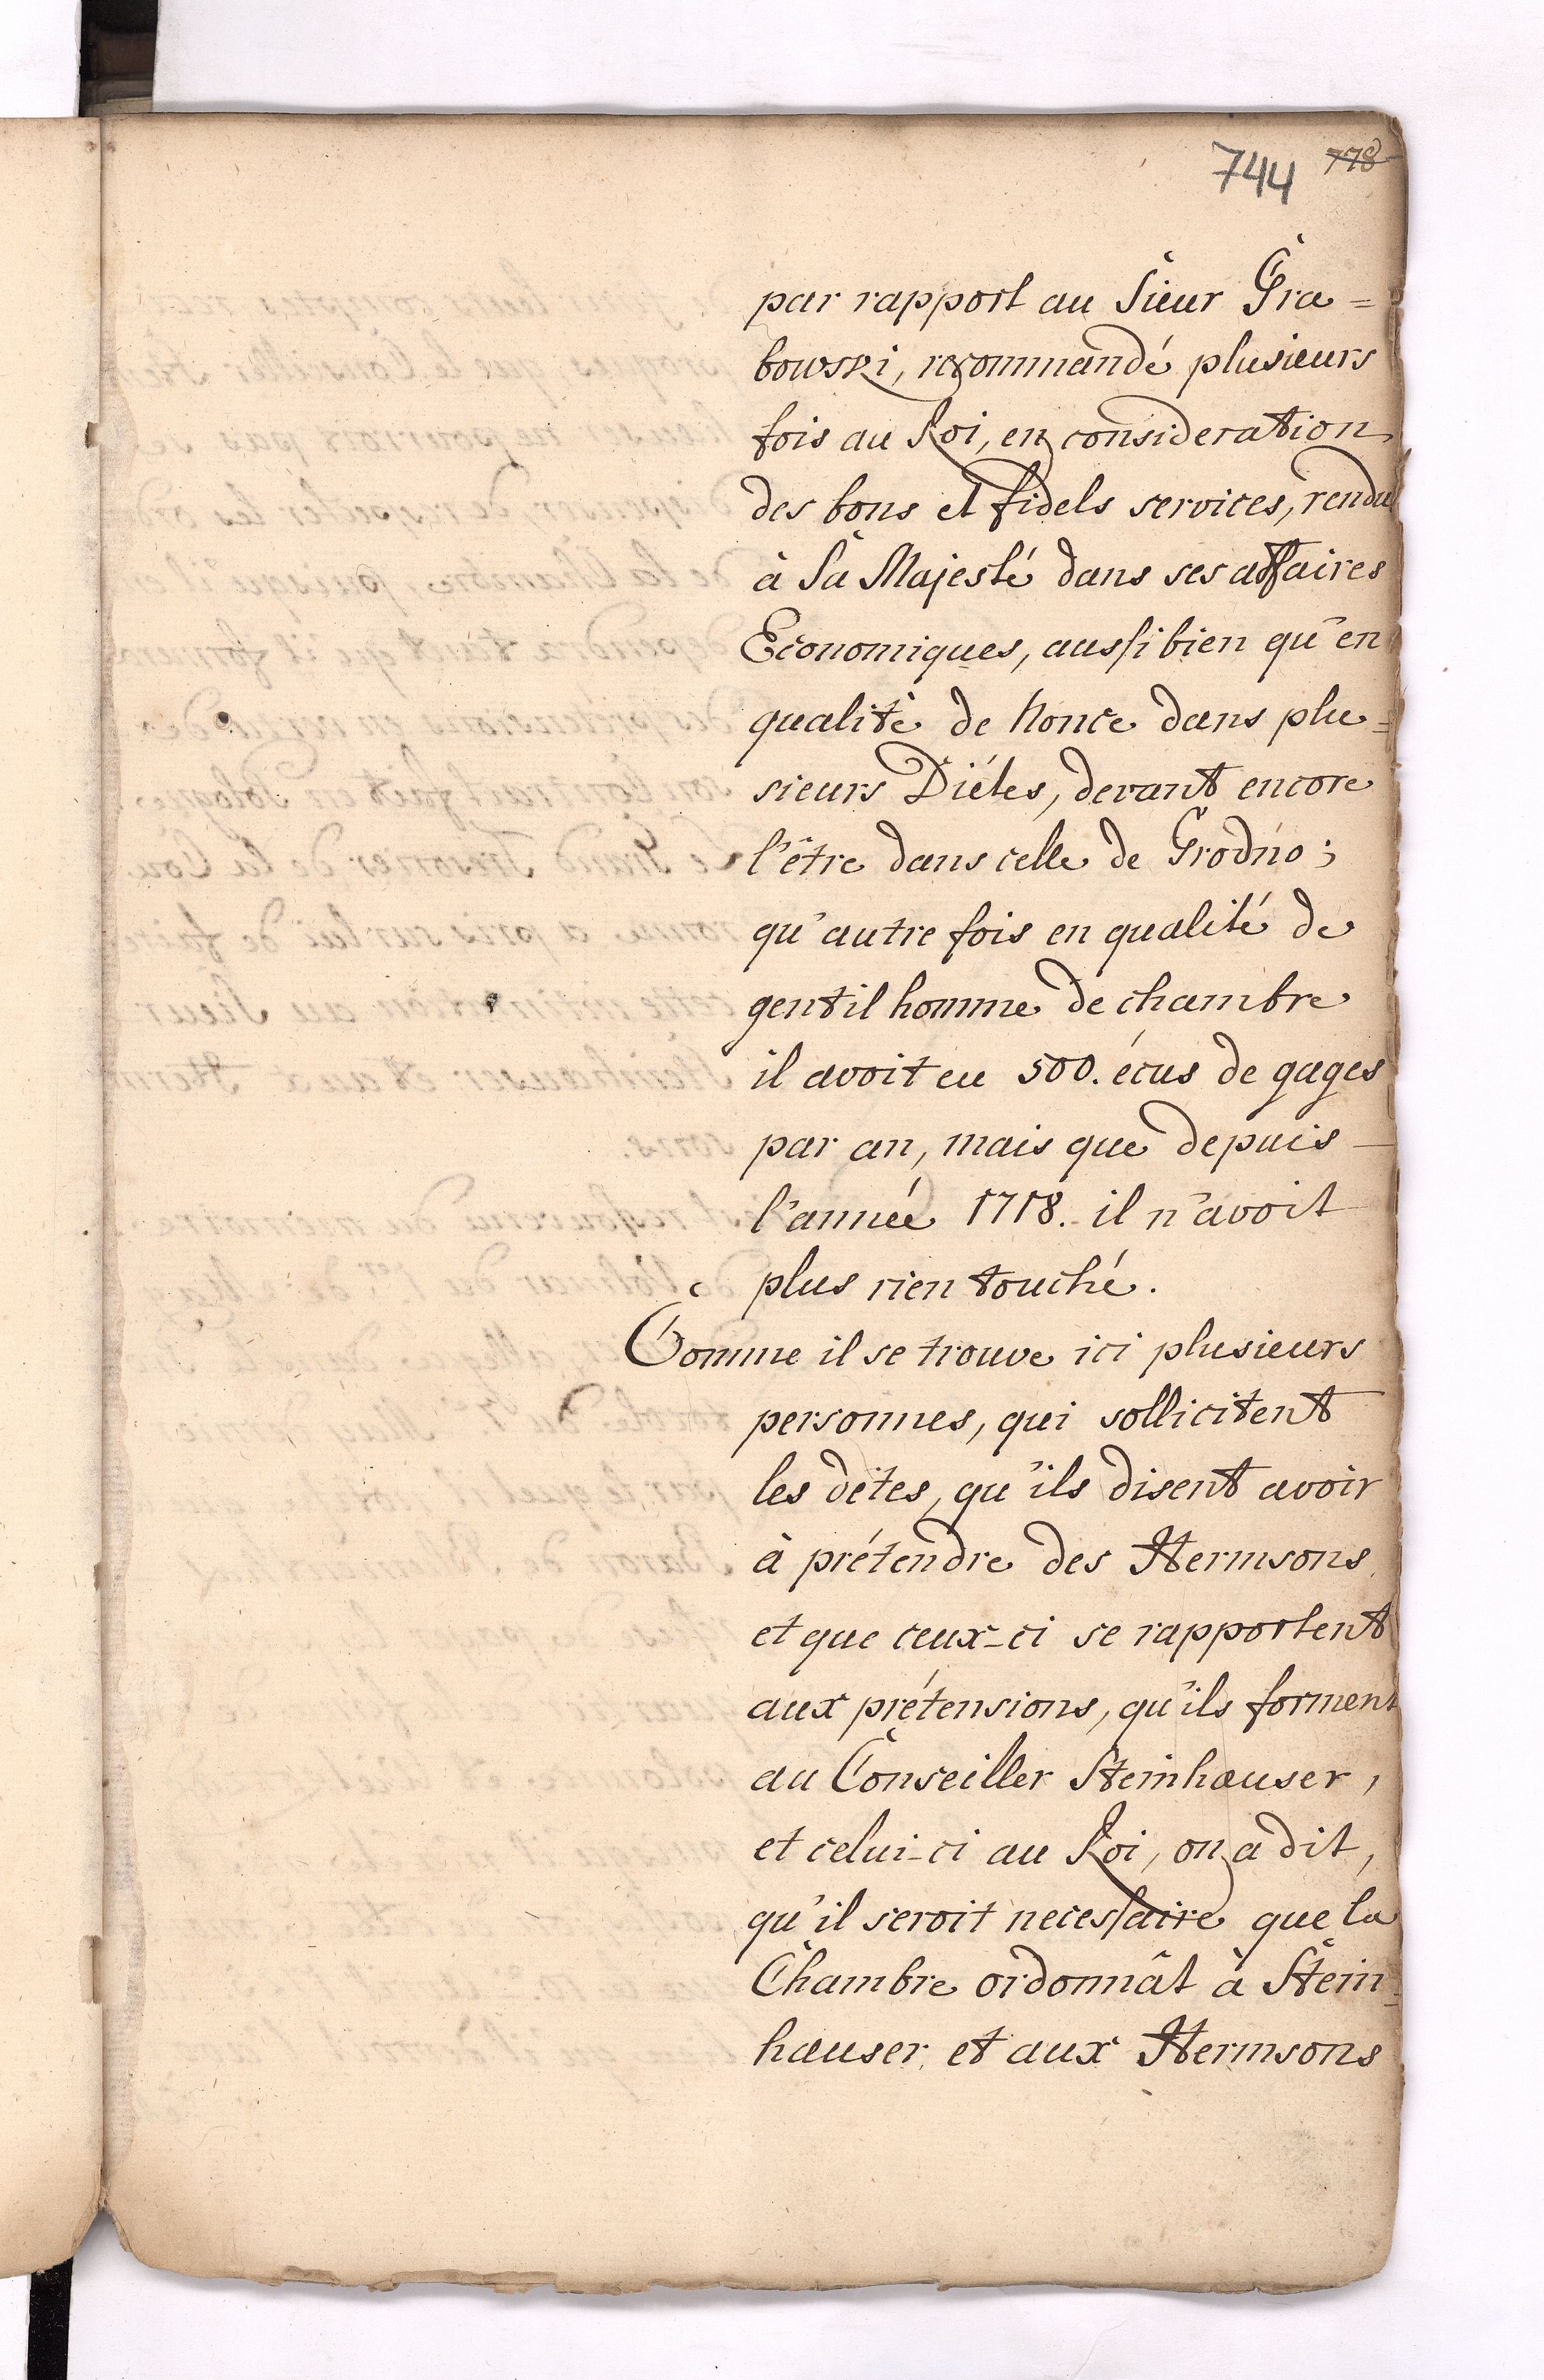 744 778
par rapport au Sieur Gra=
bowski, recommandé plusieurs
fois au Roi, en consideration
des bons et fidels services, rendu
à Sa Majesté dans ses affaires
Economiques, aussi bien qu'en
qualité de Nonce dans plu=
sieurs Diétes, devant encore
l'être dans celle de Grodno;
qu'autre fois en qualité de
gentil homme de chambre
il avoit eu 500. écus de gages
par an, mais que depuis
l'année 1718. il n'avoit
plus rien touché.
Comme il se trouve ici plusieurs
personnes, qui sollicitent
les détes, qu'ils disent avoir
à prétendre des Hermsons
et que ceux-ci se rapportent
aux prétensions, qu'ils forment
au Conseiller Steinhauser,
et celui-ci au Roi, on a dit,
qu'il seroit necessaire que la
Chambre ordonnât à Stein=
hauser et aux Hermsons